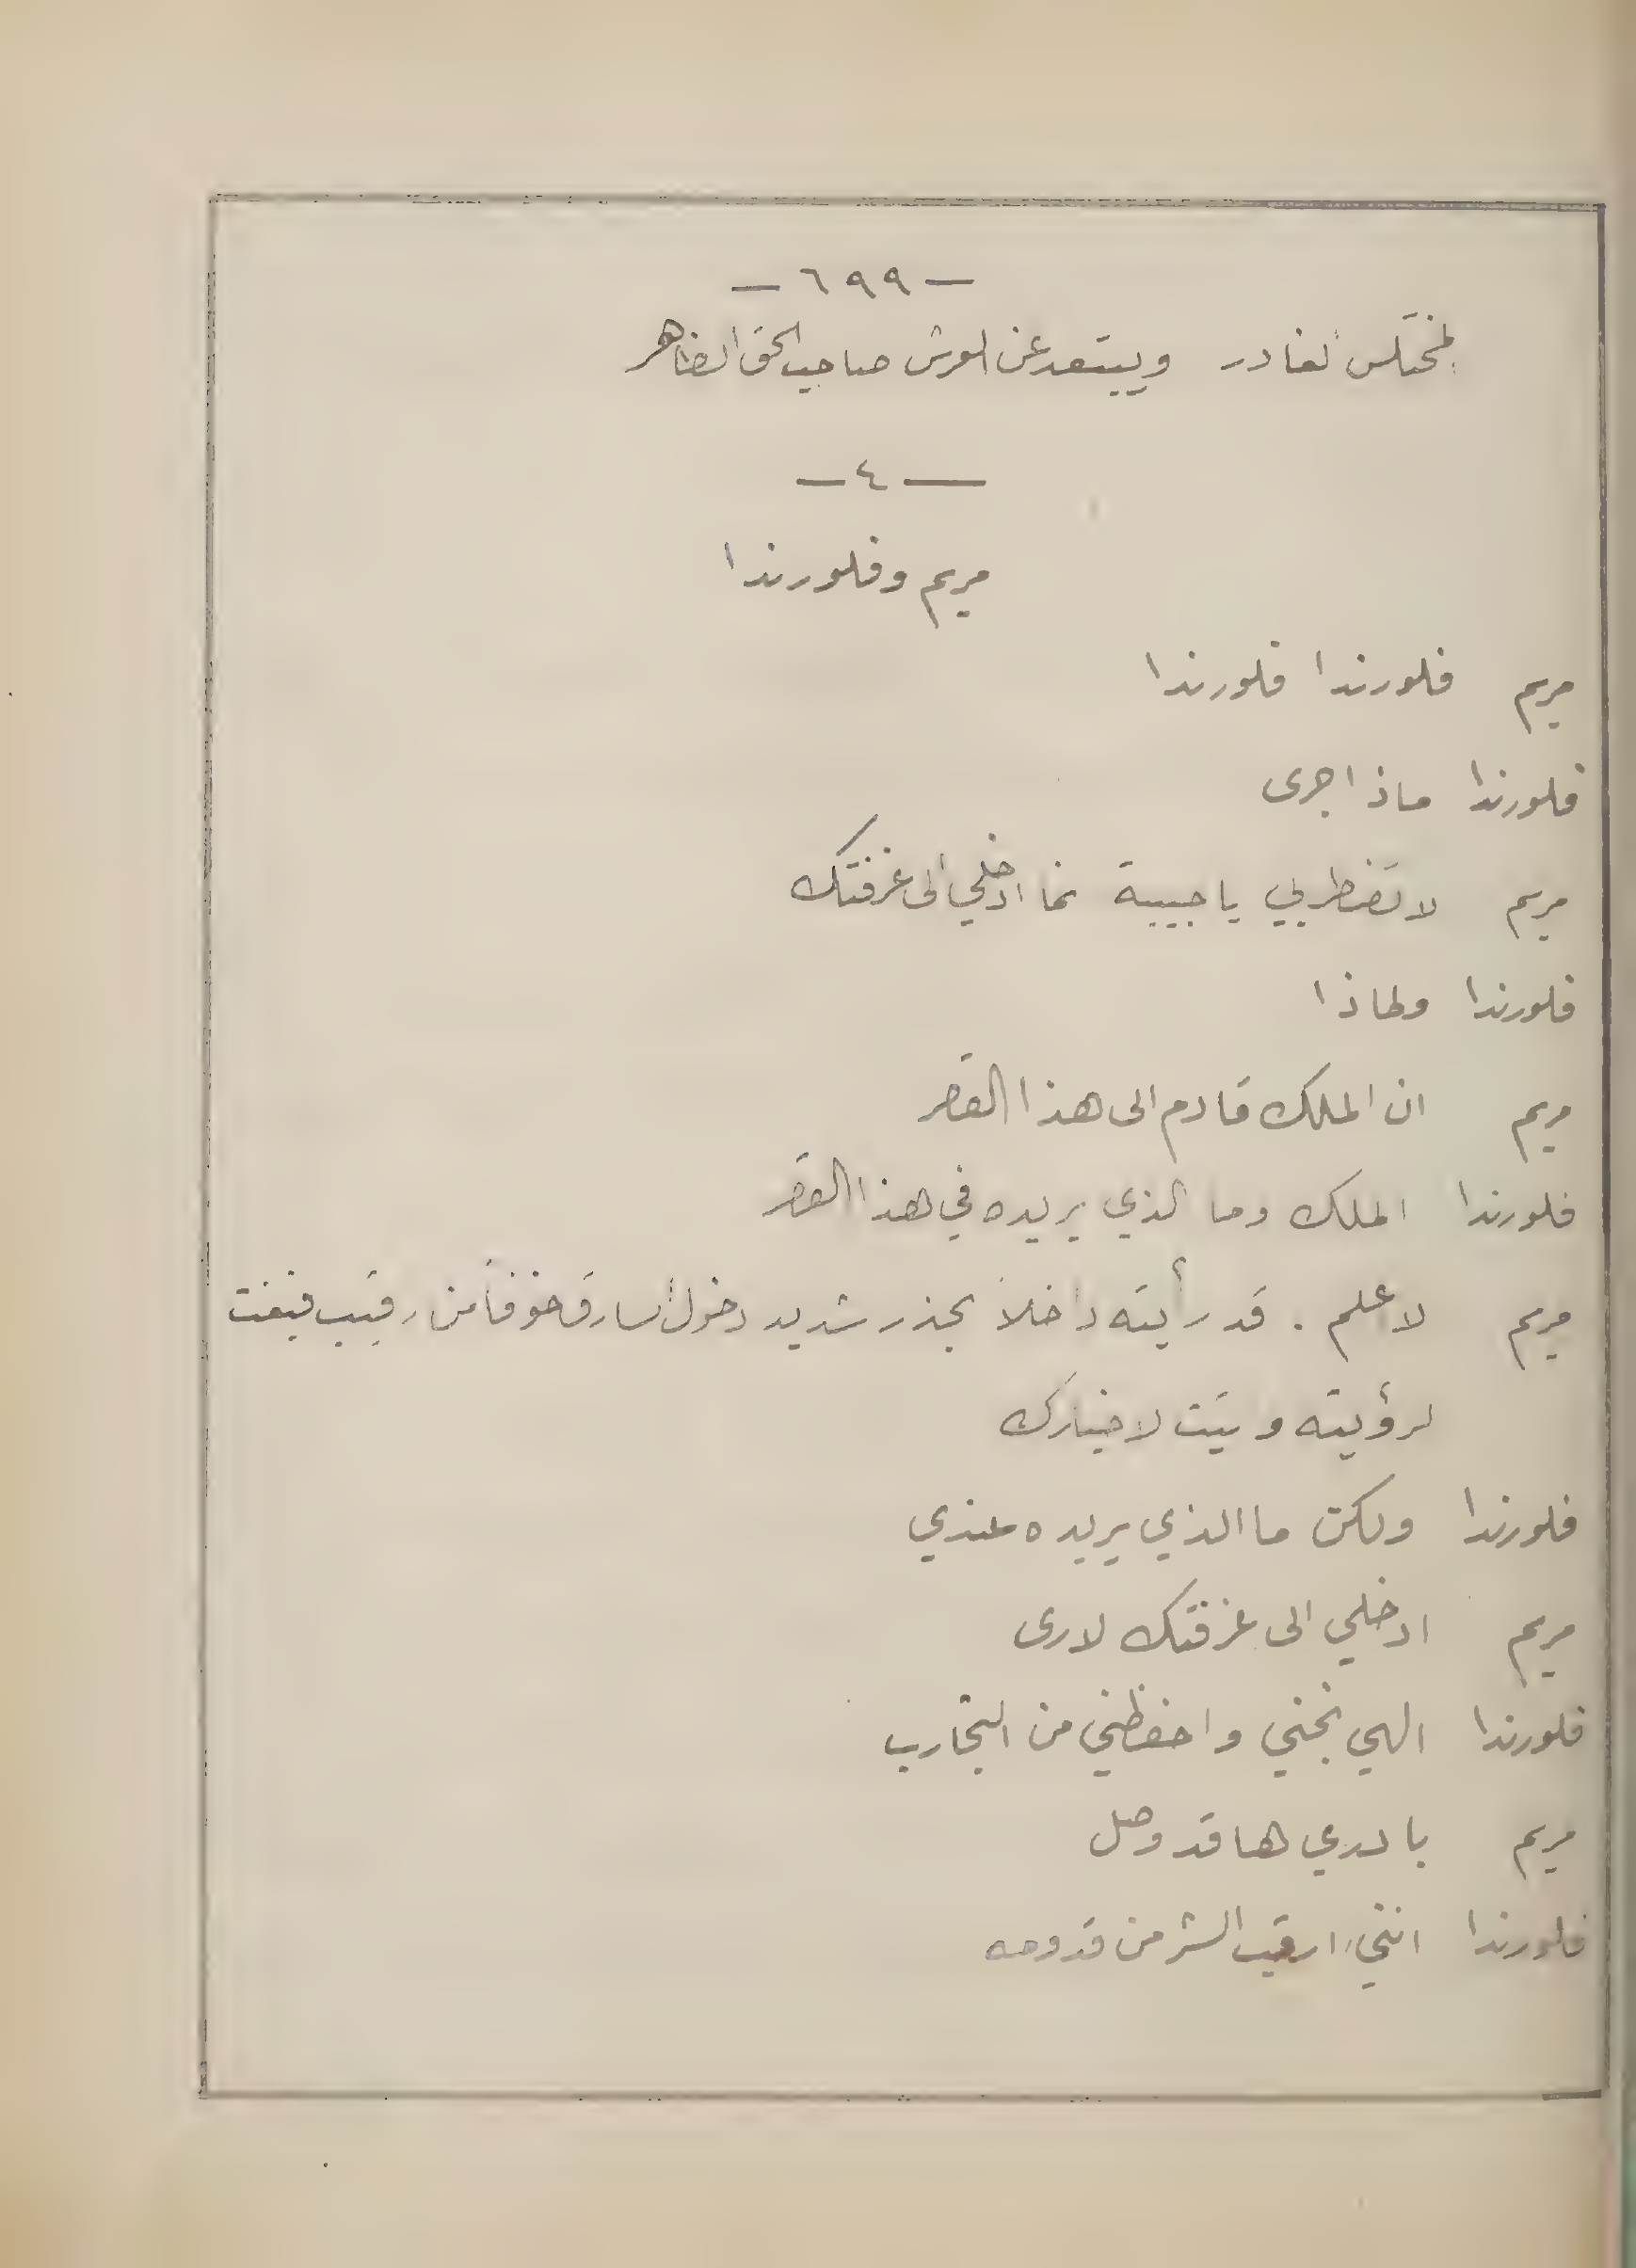 — ٦٩٩ —
المختلس الغادر ويبتعد عن العرش صاحب الحق الظاهر
— ٤ —
مريم وفلورندا
مريم فلورندا فلورندا
فلورندا ماذا جرى
مريم لا تضطربي يا حبيبة انما ادخلي الى غرفتك
فلورندا ولماذا
مريم ان الملك قادم الى هذا القصر
فلورندا الملك وما الذي يريده في هذا القصر
مريم لا علم . قد رأيته داخلاً بحذر شديد دخول السارق خوفاً من رقيب
لرؤيته لاخبارك
فلورندا ولكن ما الذي يريده عندي
مريم ادخلي الى غرفتك لارى
فلورندا الهي نجني واحفظني من التجارب
مريم بادري ها قد وصل
فلورندا انني ارقب الشر من قدومه